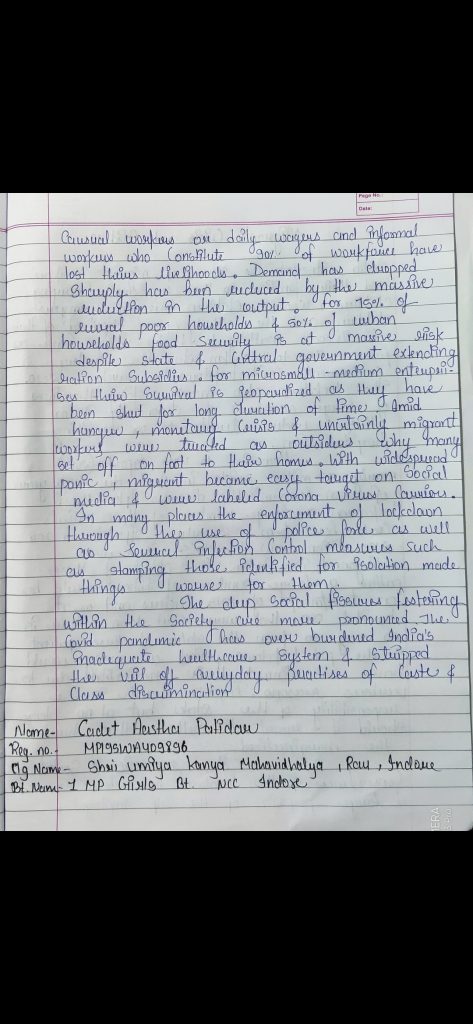 Page No.:
Date:
Causual workers or daily wagers and informal
workers who Constitute 90% of workforce have
lost theirs livelihoods. Demand has dropped
Sharply has been reduced by the massive
reduction in the output. for 75% of
rural poor households & 50% of urban
households food Security is at massive risk
despite state & Central government extending
ration Subsidies. for microsmall-medium enterpri-
ses their Survival is jeopardized as they have
been shut for long duration of time. Amid
hunger, monetary crisis & uncertainly migrant
workers were treated as outsiders why many
set off on foot to their homes. With widespread
panic, migrant became easy target on Social
media & were labeled Corona virus Carriers.
In many places the enforcement of lockdown
through the use of police force as well
as Several infection Control measures such
as stamping those identified for isolation made
things worse for them.
The deep Social fissures festering
within the Society are more pronounced. The
Covid pandemic has over burdened India's
inadequate healthcare System & Stripped
the veil off everyday practises of Caste &
Class discrimination
Name- Cadet Aastha Patidar
Reg. no.- MP19SWA409896
Clg Name- Shri umiya kanya Mahavidhalya, Rau, Indore
Bt. Name- 1 MP Girls Bt. NCC Indore